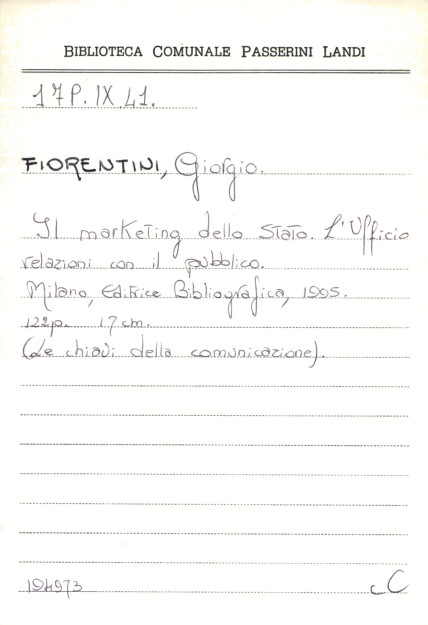 BIBLIOTECA COMUNALE PASSERINI LANDI
17P.IX.41.
FIORENTINI, Giorgio.
Il marketing dello Stato. L'Ufficio
relazioni con il pubblico.
Milano, Editrice Bibliografica, 1995.
122p. 17cm.
(Le chiavi della comunicazione).
194973
C